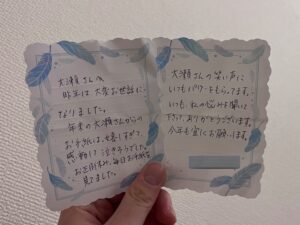 大瀬さんへ
昨年は大変お世話に
なりました。
年末の大瀬さんからの
お手紙は、嬉しすぎて、
感動して泣きそうでした。
お正月休み、毎日お手紙を
見てました。
大瀬さんの笑い声に
いつもパワーをもらってます。
いつも、私の悩みを聞いて
下さりありがとうございます。
今年も宜しくお願いします。